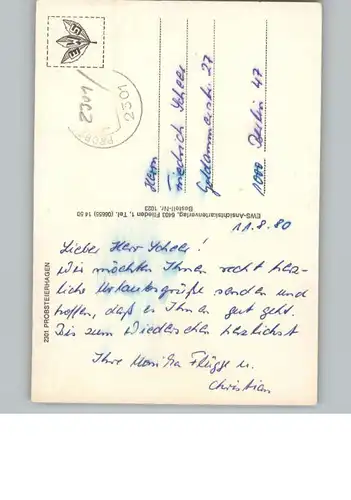 2301
PROBST
2301
Herrn
Friedrich Scheer
Goldammerstr. 27
1000 Berlin 47
EWS-Ansichtskartenverlag, 6403 Flieden 1, Tel. (06655) 14 50
Bestell-Nr. 1023
2301 PROBSTEIERHAGEN
11.8.80
Lieber Herr Scheer!
Wir möchten Ihnen recht herz-
liche Urlaubsgrüße senden und
hoffen, daß es Ihnen gut geht.
Bis zum Wiedersehen herzlichst
Ihre Monika Flügge u.
Christian